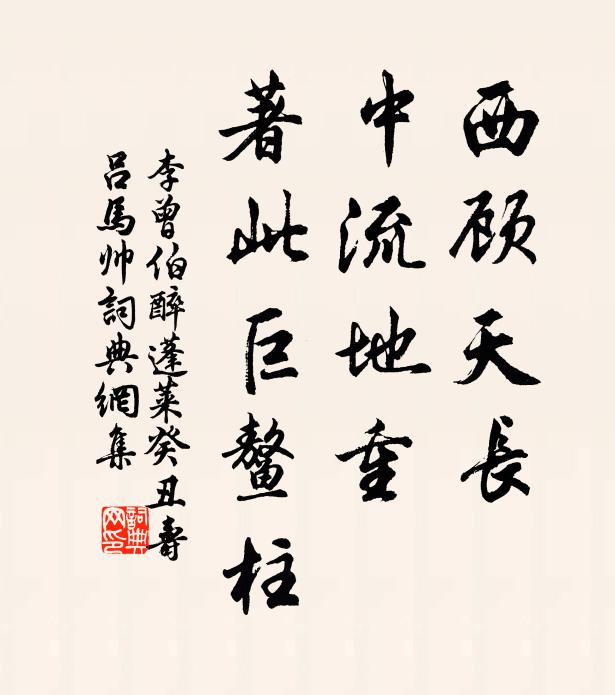 西顾天長
中流地重
著此巨鳌柱
李曾伯醉蓬莱癸丑壽
呂馬帅詞典網集
詞典网印